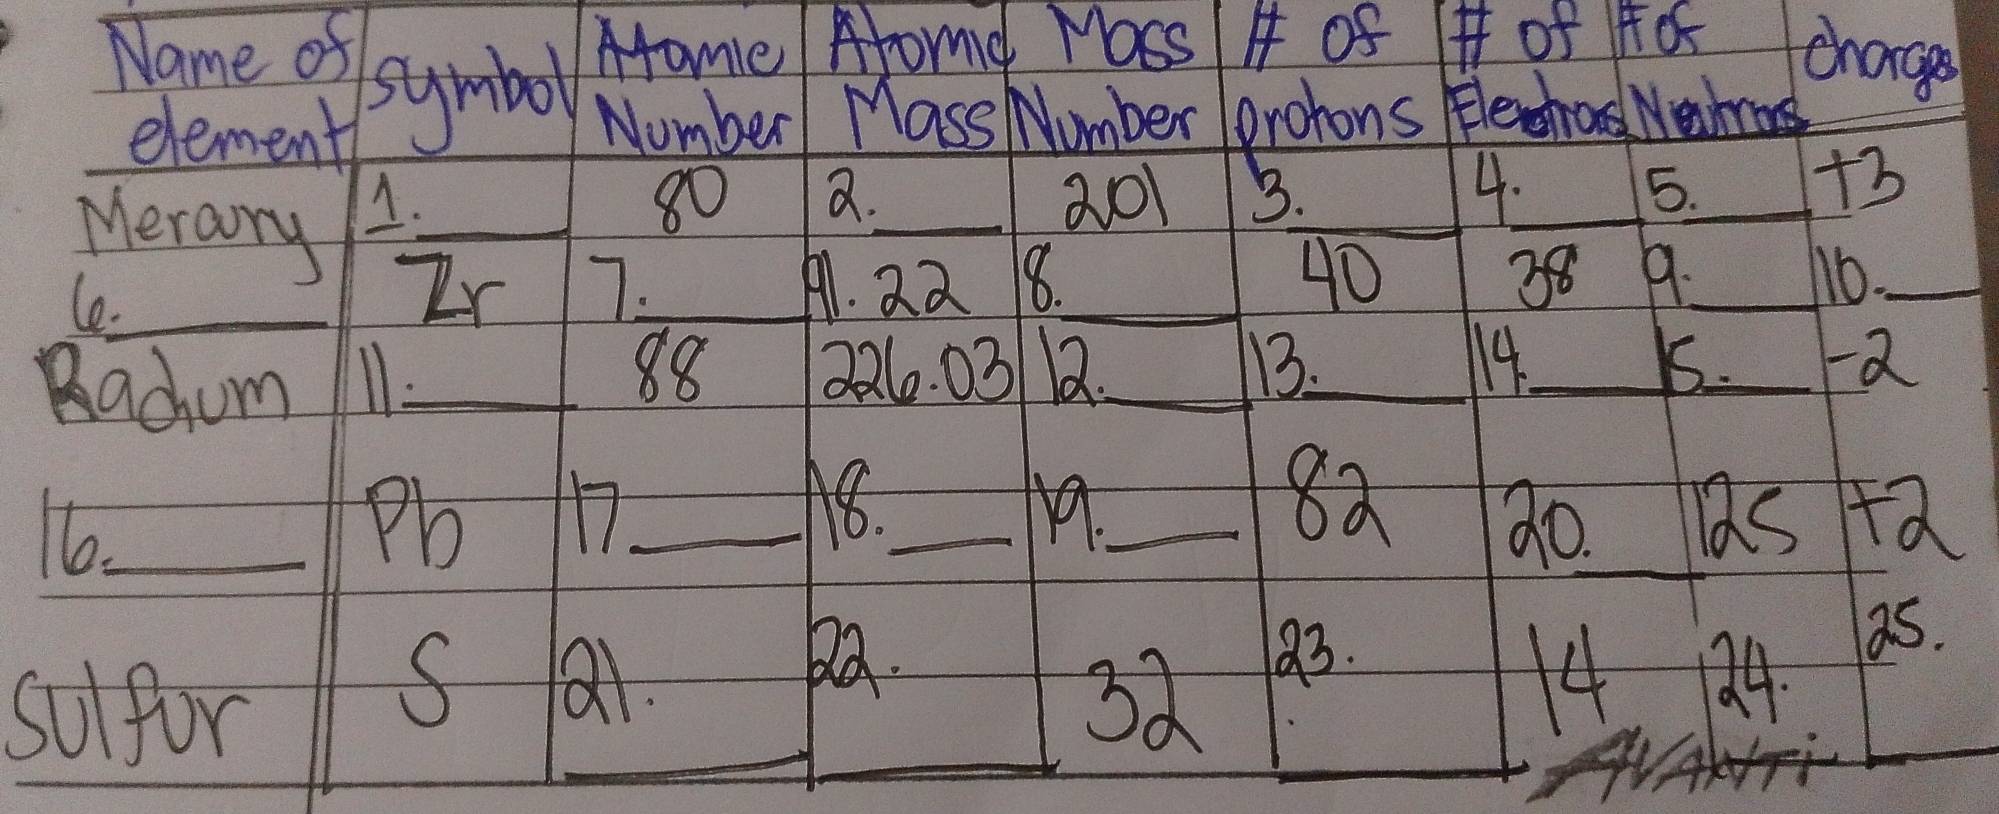 Name of element symbol Atomic Number Atomic Mass Mass Number # of protons # of Electrons # of Neutrons charges
Mercury 1. 80 2. 201 3. 4. 5. +3
6. Zr 7. 91.22 8. 40 38 9. 10.
Radium 11. 88 226.03 12. 13. 14. 15. -2
16. Pb 17 18. 19. 82 20. 125 +2
Sulfur S 21. 22. 32 23. 14 24. 25.